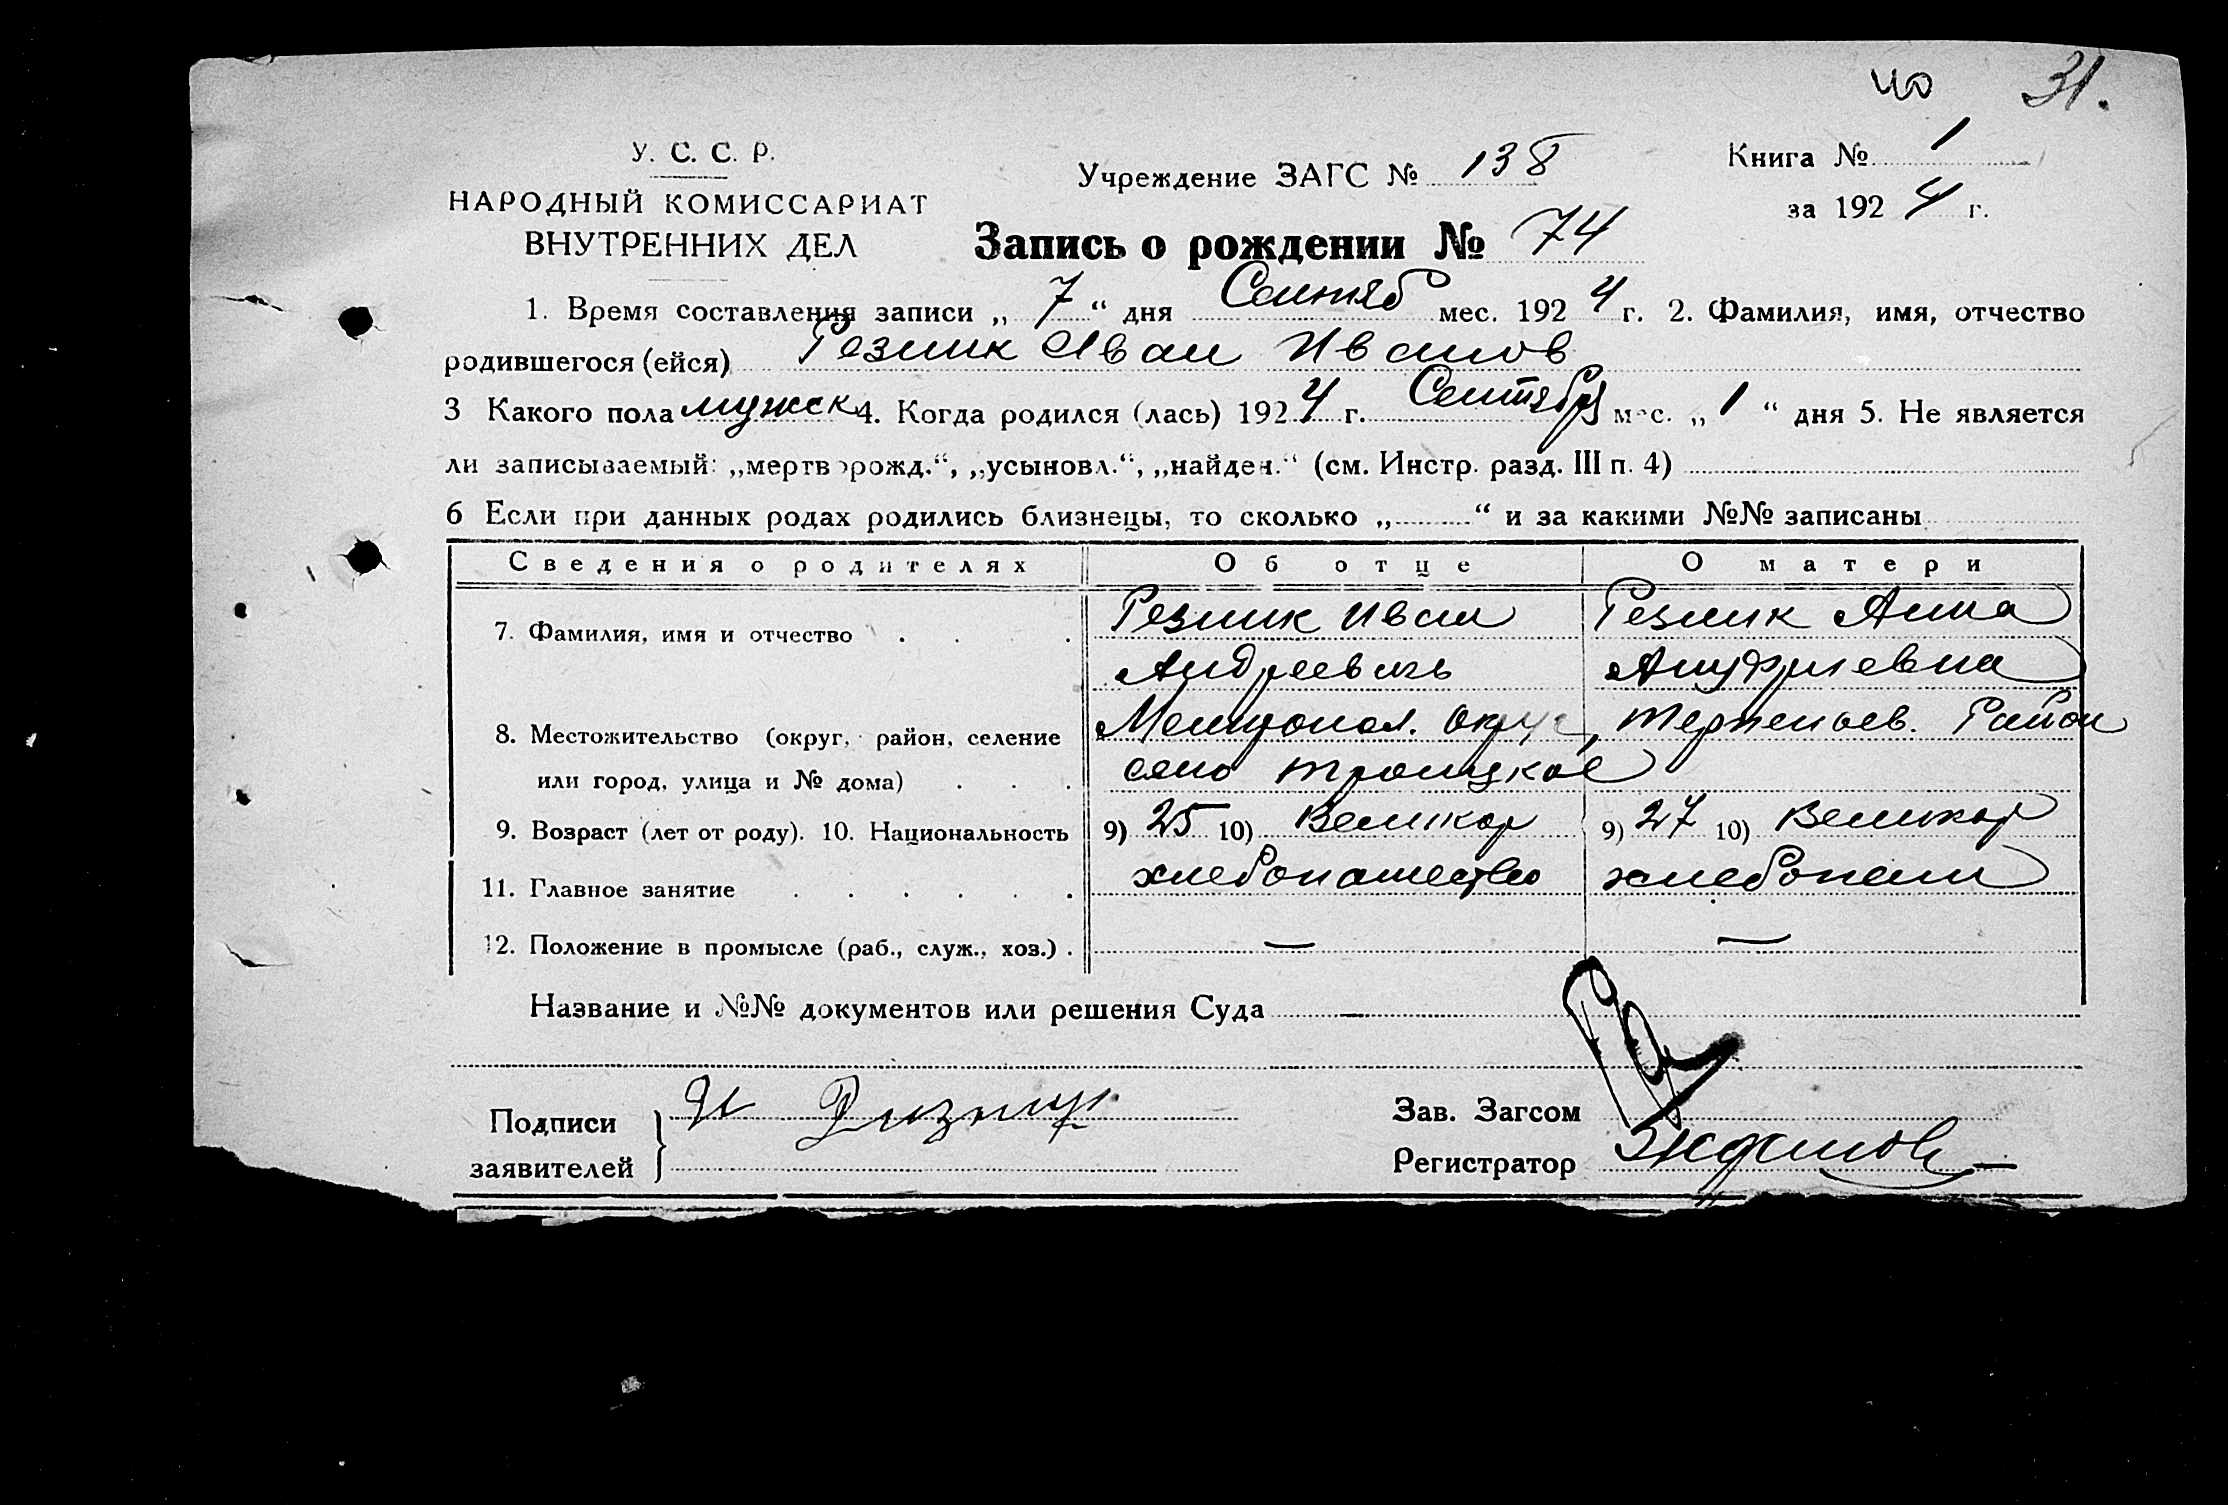 31.
У. С. С. Р.
НАРОДНЫЙ КОМИССАРИАТ
ВНУТРЕННИХ ДЕЛ
Учреждение ЗАГС № 138
Книга № 1
за 1924 г.
Запись о рождении № 74
1. Время составления записи „ 7 “ дня Сентяб мес. 1924 г. 2. Фамилия, имя, отчество
родившегося (ейся) Резник Иван Иванов
3 Какого пола мужск 4. Когда родился (лась) 1924 г. Сентября мес. „ 1 “ дня 5. Не является
ли записываемый: „мертворожд.“, „усыновл.“, „найден.“ (см. Инстр. разд. III п. 4)
6 Если при данных родах родились близнецы, то сколько „ “ и за какими №№ записаны
Сведения о родителях Об отце О матери
7. Фамилия, имя и отчество Резник Иван Резник Анна
Андреевичь Ануфриевна
8. Местожительство (округ, район, селение Мелитопол. округ, Терпеньев. Район
или город, улица и № дома) село Троицкое
9. Возраст (лет от роду). 10. Национальность 9) 25 10) Великор 9) 27 10) Великор
11. Главное занятие хлебопашество хлебопаш
12. Положение в промысле (раб., служ., хоз.) — —
Название и №№ документов или решения Суда —
Подписи
заявителей
И
Зав. Загсом
Регистратор